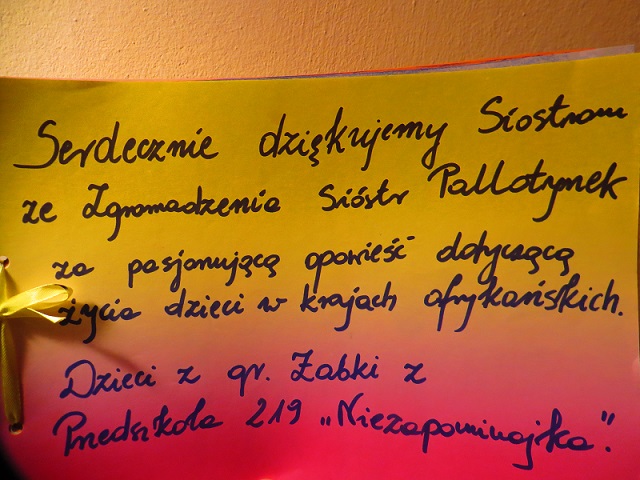 Serdecznie dziękujemy Siostrom
ze Zgromadzenia Sióstr Pallotynek
za pasjonującą opowieść dotyczącą
życia dzieci w krajach afrykańskich.
Dzieci z gr. Żabki z
Przedszkola 219 „Niezapominajka".